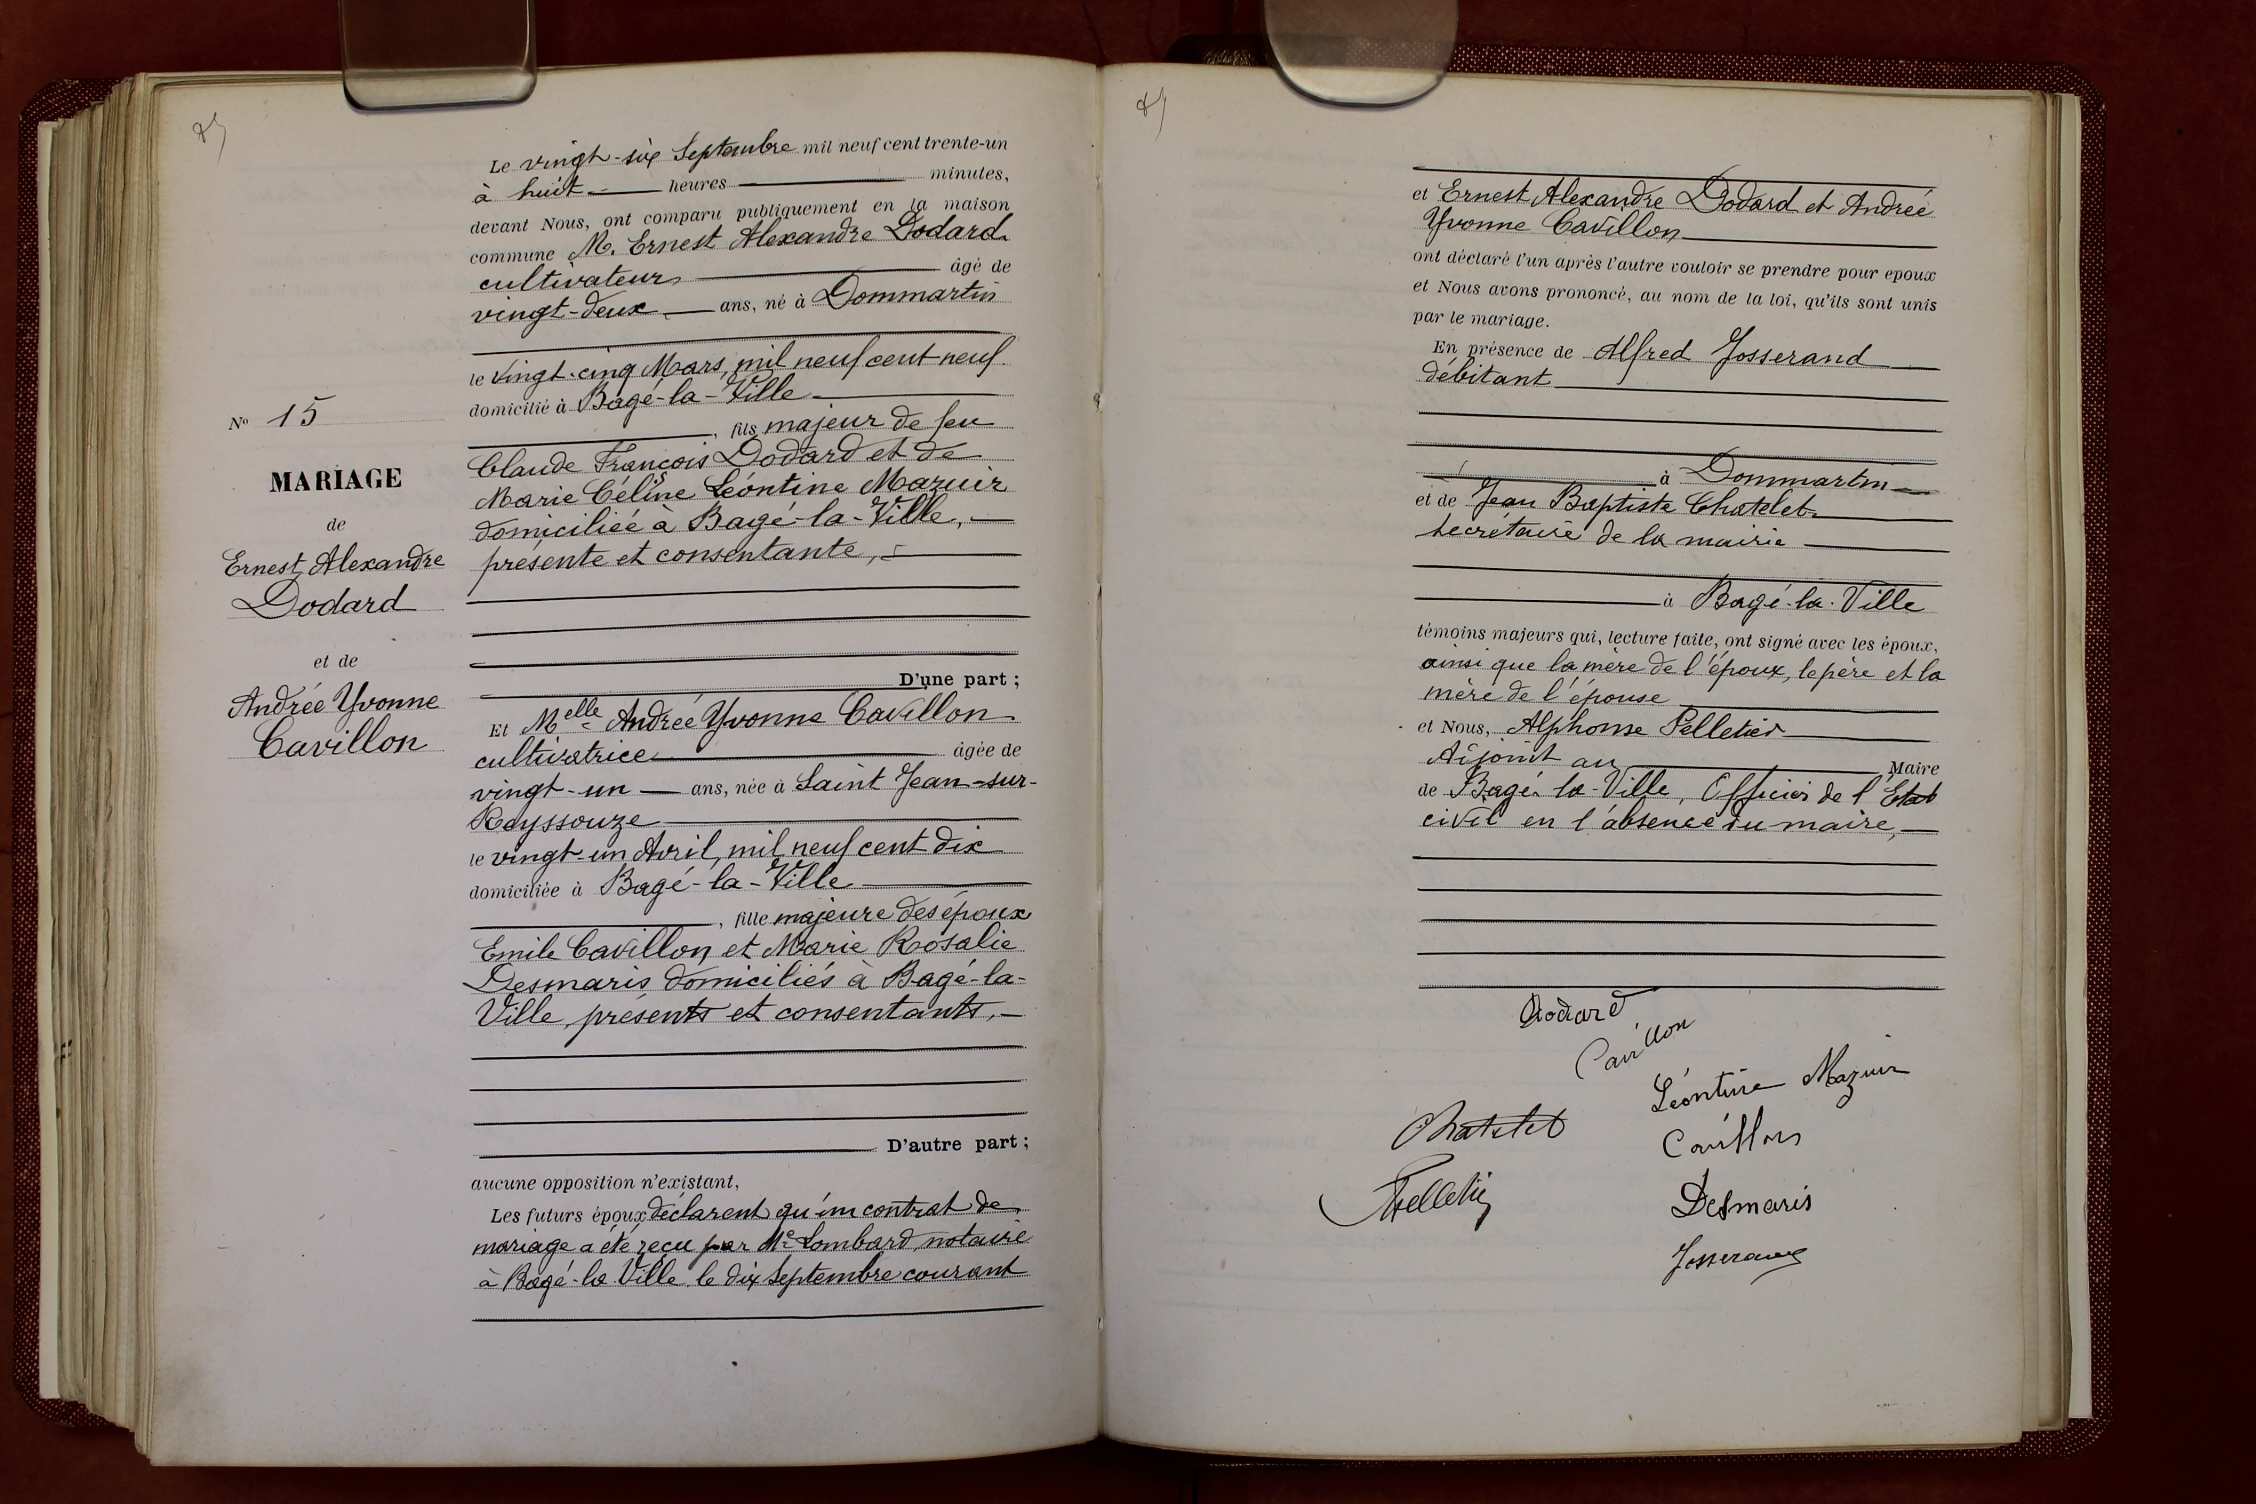 Le vingt-six Septembre mil neuf cent trente-un
à huit heures minutes,
devant Nous, ont comparu publiquement en la maison
commune M. Ernest Alexandre Dodard
cultivateur âgé de
vingt-deux ans, né à Dommartin
le vingt-cinq Mars, mil neuf cent neuf
domicilié à Bagé-la-Ville
, fils majeur de feu
Claude François Dodard et de
Marie Céline Léontine Mazuir
domiciliée à Bagé-la-Ville,
présente et consentante,
D'une part ;
Et Melle Andrée Yvonne Cavillon
cultivatrice âgée de
vingt-un ans, née à Saint Jean-sur-
Reyssouze
le vingt-un Avril, mil neuf cent dix
domiciliée à Bagé-la-Ville
, fille majeure des époux
Emile Cavillon et Marie Rosalie
Desmaris domiciliés à Bagé-la-
Ville, présents et consentants,
D'autre part ;
aucune opposition n'existant,
Les futurs époux déclarent qu'un contrat de
mariage a été reçu par Me Lombard, notaire
à Bagé-la-Ville le dix Septembre courant
No 15
MARIAGE
de
Ernest Alexandre
Dodard
et de
Andrée Yvonne
Cavillon
et Ernest Alexandre Dodard et Andrée
Yvonne Cavillon
ont déclaré l'un après l'autre vouloir se prendre pour epoux
et Nous avons prononcé, au nom de la loi, qu'ils sont unis
par le mariage.
En présence de Alfred Josserand
débitant
à Dommartin
et de Jean Baptiste Chatelet
secrétaire de la mairie
à Bagé-la-Ville
témoins majeurs qui, lecture faite, ont signé avec les époux,
ainsi que la mère de l'époux, le père et la
mère de l'épouse
et Nous, Alphonse Pelletier
Adjoint au Maire
de Bagé-la-Ville, Officier de l'Etat
civil en l'absence du maire,
Dodard
Cavillon
Léontine Mazuir
Chatelet
Cavillon
Pelletier
Desmaris
Josserand